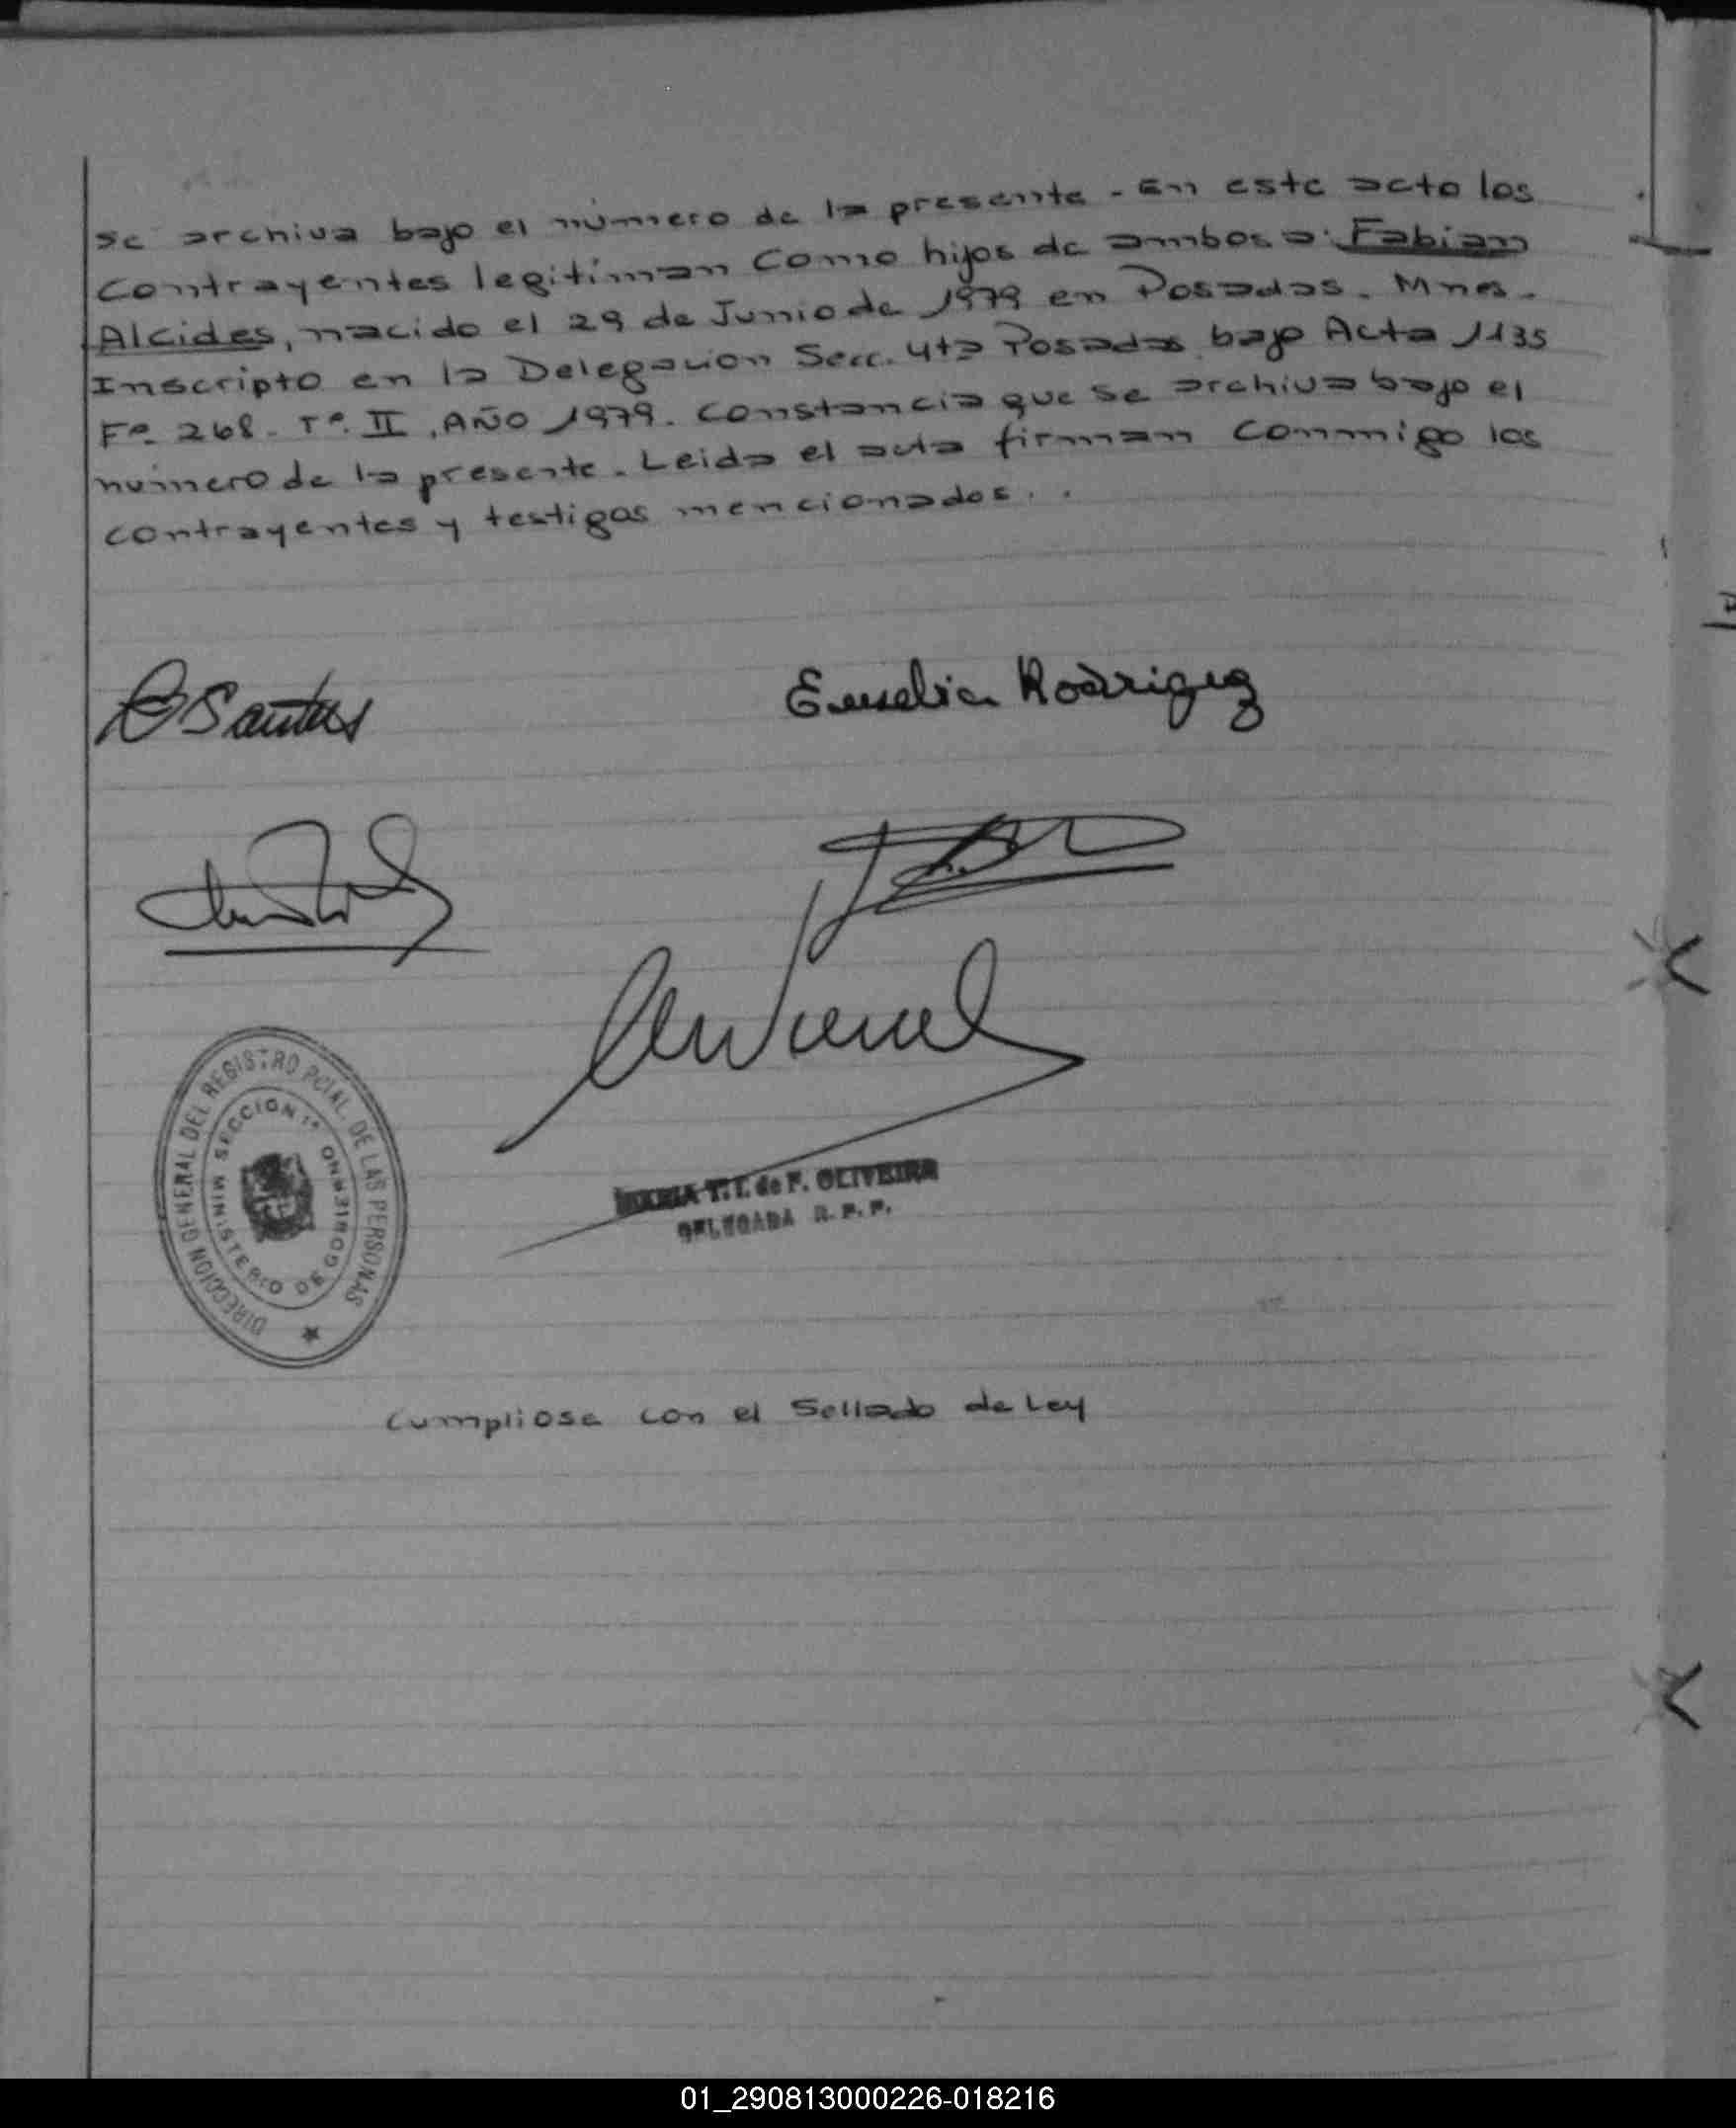 se archiva bajo el número de la presente - En este acto los
contrayentes legitiman como hijos de ambos a: Fabian
Alcides, nacido el 29 de Junio de 1979 en Posadas. Mnes.
Inscripto en la Delegacion Secc. 4ta Posadas bajo Acta 1135
Fº. 268. Tº. II, AÑO 1979. Constancia que se archiva bajo el
número de la presente. Leida el acta firman conmigo los
contrayentes y testigos mencionados..
Santos
Rodriguez
DIRECCION GENERAL DEL REGISTRO PCIAL. DE LAS PERSONAS
MINISTERIO DE GOBIERNO
SECCION 1ª
T. I. de F. OLIVEIRA
DELEGADA R. P. P.
Cumpliose con el Sellado de Ley
01_290813000226-018216